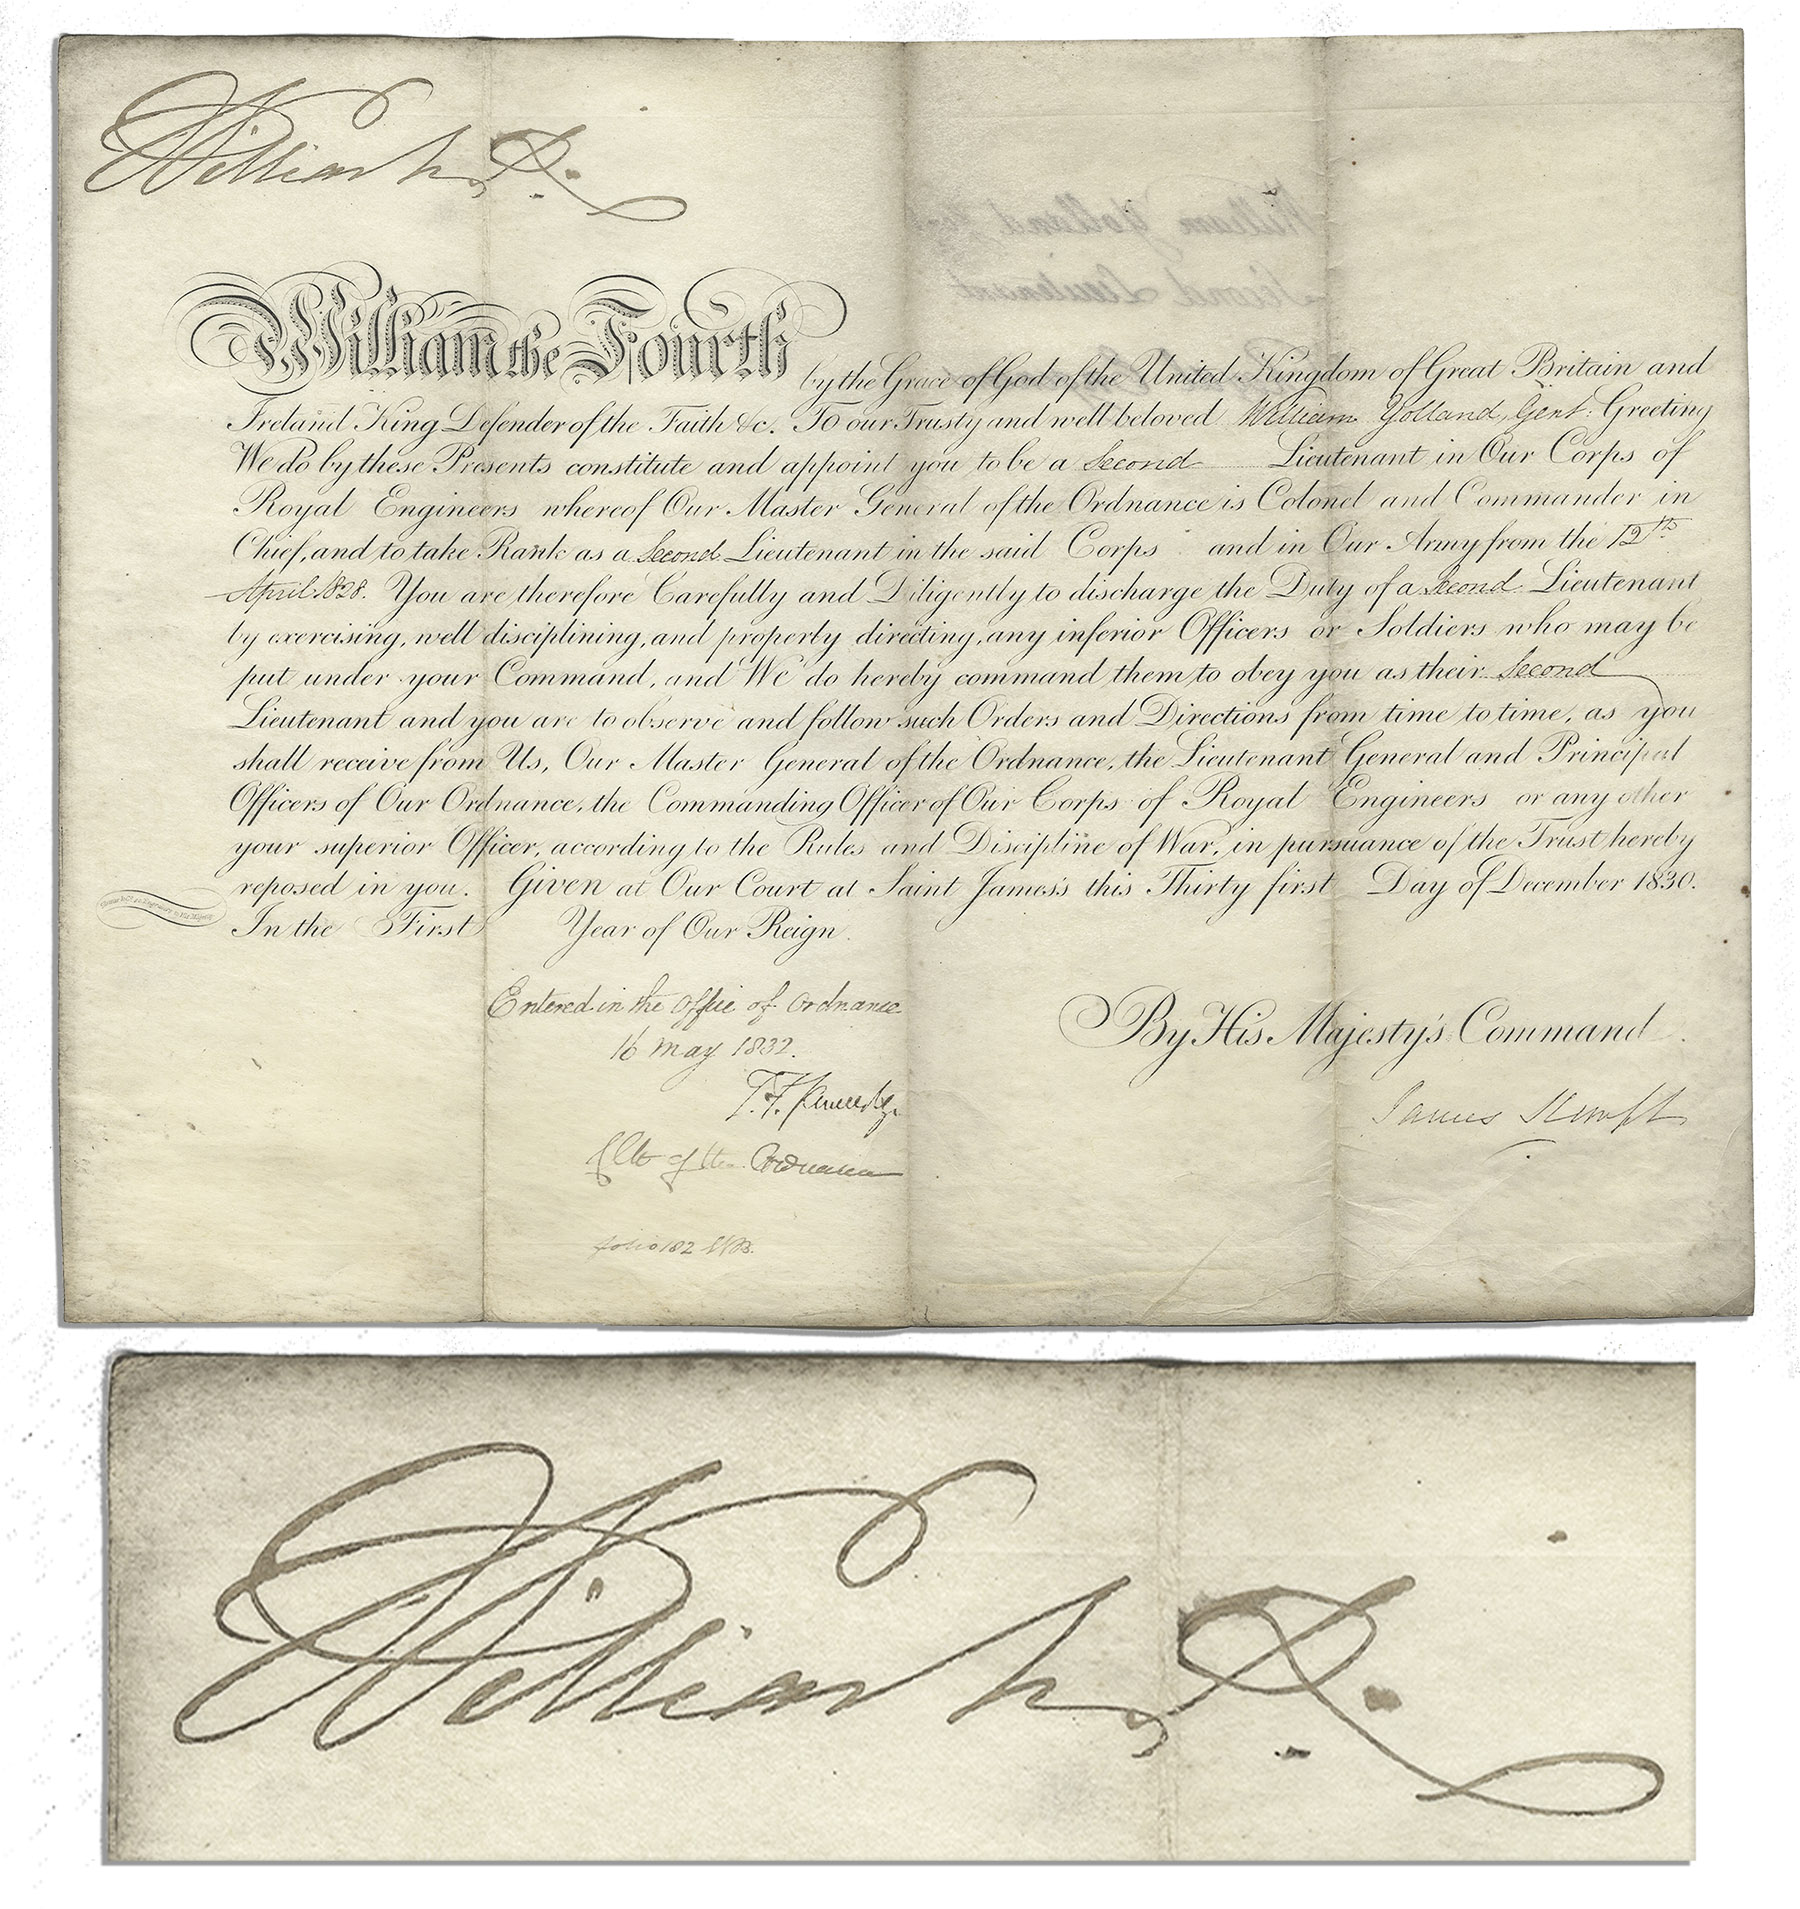 William R.
William Yolland Gent
Second Lieutenant
William the Fourth by the Grace of God of the United Kingdom of Great Britain and
Ireland King Defender of the Faith &c. To our Trusty and well beloved William Yolland, Gent: Greeting
We do by these Presents constitute and appoint you to be a Second Lieutenant in Our Corps of
Royal Engineers whereof Our Master General of the Ordnance is Colonel and Commander in
Chief, and to take Rank as a Second Lieutenant in the said Corps and in Our Army from the 12th
April 1828. You are therefore Carefully and Diligently to discharge the Duty of a Second Lieutenant
by exercising, well disciplining, and properly directing, any inferior Officers or Soldiers who may be
put under your Command, and We do hereby command them to obey you as their Second
Lieutenant and you are to observe and follow such Orders and Directions from time to time, as you
shall receive from Us, Our Master General of the Ordnance, the Lieutenant General and Principal
Officers of Our Ordnance, the Commanding Officer of Our Corps of Royal Engineers or any other
your superior Officer, according to the Rules and Discipline of War, in pursuance of the Trust hereby
reposed in you. Given at Our Court at Saint James's this Thirty first Day of December 1830.
In the First Year of Our Reign.
Entered in the Office of Ordnance
16 May 1832.
By His Majesty's Command
T. F. Kennedy
James Kempt
Clk of the Ordnance
folio 182
William R.